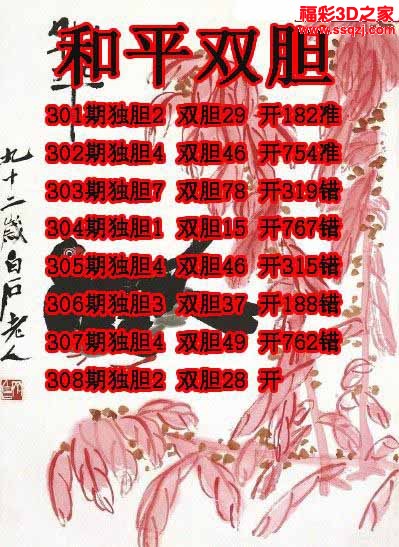 福彩3D之家
www.ssqzj.com
和平双胆
301期独胆2 双胆29 开182准
302期独胆4 双胆46 开754准
303期独胆7 双胆78 开319错
304期独胆1 双胆15 开767错
305期独胆4 双胆46 开315错
306期独胆3 双胆37 开188错
307期独胆4 双胆49 开762错
308期独胆2 双胆28 开
九十二岁白石老人